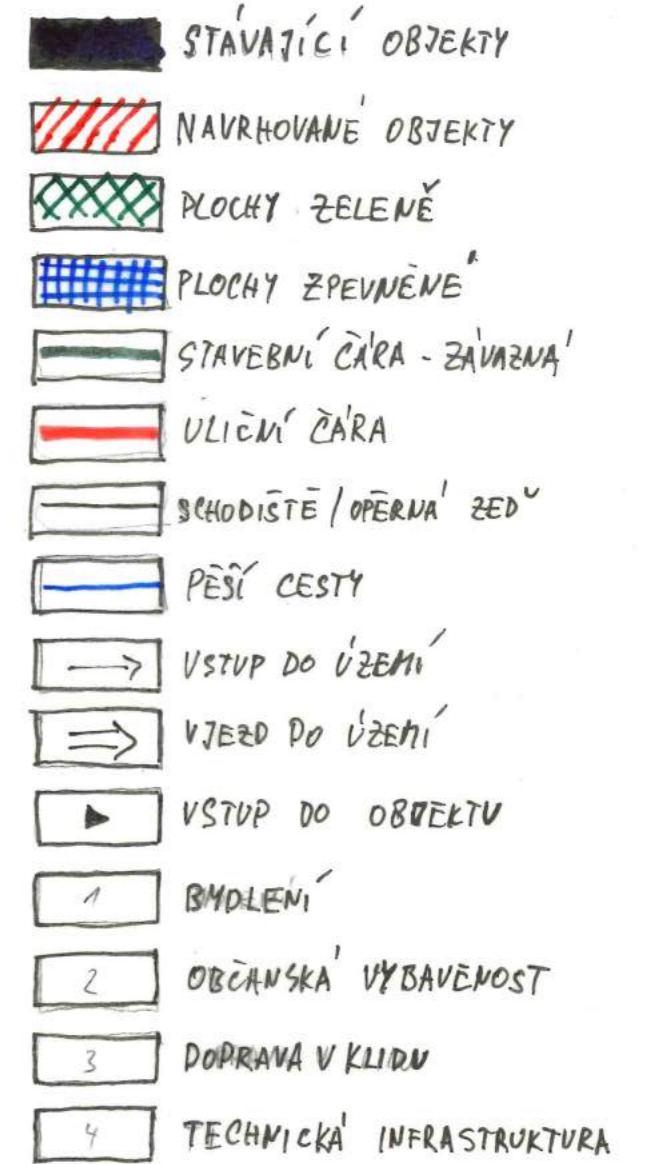 STÁVAJÍCÍ OBJEKTY
NAVRHOVANÉ OBJEKTY
PLOCHY ZELENĚ
PLOCHY ZPEVNĚNÉ
STAVEBNÍ ČÁRA - ZÁVAZNÁ
ULIČNÍ ČÁRA
SCHODIŠTĚ / OPĚRNÁ ZEĎ
PĚŠÍ CESTY
VSTUP DO ÚZEMÍ
VJEZD DO ÚZEMÍ
VSTUP DO OBJEKTU
1 BYDLENÍ
2 OBČANSKÁ VYBAVENOST
3 DOPRAVA V KLIDU
4 TECHNICKÁ INFRASTRUKTURA